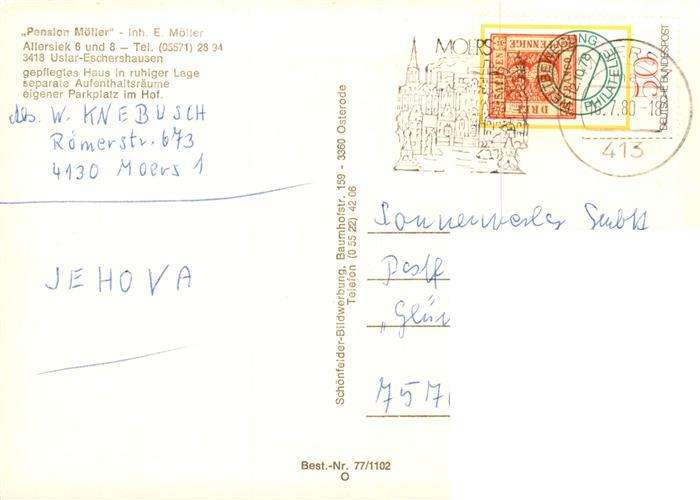 „Pension Möller" - Inh. E. Möller
Allersiek 6 und 8 — Tel. (05571) 28 94
3418 Uslar-Eschershausen
gepflegtes Haus in ruhiger Lage
separate Aufenthaltsräume
eigener Parkplatz im Hof.
Abs. W. KNEBUSCH
Römerstr. 673
4130 Moers 1
JEHOVA
Schönfelder-Bildwerbung, Baumhofstr. 159 - 3360 Osterode
Telefon (0 55 22) 42 06
MOERS
DREI
PFENNIGE
SACHSEN
WELTBEWEGUNG PHILATELIE
DEUTSCHE BUNDESPOST
50
.7.80-18
413
GmbH
Postf
„Glü
757
Best.-Nr. 77/1102
O